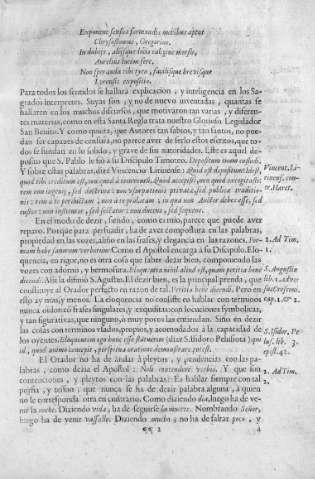 Exponent sensus formandis moribus aptos
Chrysostomus, Gregorius.
In dubijs, alijsque
Aurelius lucem fert.
Non spernenda
Lyrensis expositio.
Para todos los sentidos se hallarà explicacion, y inteligencia en los Sa-
grados interpretes. Suyas son, y no de nuevo inventadas, quantas se
hallaren en los muchos discursos, que motivaron tan varias, y diferen-
tes materias, como en esta Santa Regla trata nuestro Glorioso Legislador
San Benito. Y como quiera, que Autores tan sabios, y tan santos, no pue-
dan ser capaces de censura, no parece aver de serlo estos escritos, que to-
dos se fundan en lo solido, y grave de sus autoridades. Este es aquel de-
posito que S. Pablo le fiò a su Discipulo Timoteo. Depositum custodi.
Y sobre estas palabras, dize Vincencio Lirinense: Quid est depositum? id est,
quod tibi creditum est, non quod à te inventum, quod accepisti, non quod excogitasti:
rem non ingenij, sed doctrinæ: non usurpationis privatæ, sed publicæ traditio-
nis: rem à te perductam, non à te prolatam, in qua non Auctor debes esse, sed
custos: non institutor, sed sectator: non ducens, sed sequens.
En el modo de dezir, siendo, como es mio, parece que puede aver
reparo. Porque para persuadir, ha de aver compostura en las palabras,
propiedad en las vozes, aliño en las frases, y elegancia en las razones. For-
mam habe sanorum verborum. Como el Apostol encarga a su Discipulo. Elo-
quencia, en rigor, no es otra cosa que saber dezir bien, componiendo las
vozes con adorno, y hermosura. Eloquentia nihil aliud est, quam peritia bene
dicendi. Assi la difinio S. Agustin. El dezir bien, es la principal prenda, que
constituye al Orador perfecto en razon de tal. Peritia bene dicendi. Pero en
esto ay mas, y menos. La eloquencia no consiste en hablar con terminos
nunca oidos: ò frases singulares, y exquisitas: con locuciones symbolicas,
y tan figurativas, que ninguno, ò muy pocos las entiendan. Sino en dezir
las cosas con terminos vsados, propios, y acomodados à la capacidad de
los oyentes. Eloquentem ergo hunc esse (dize S. Isidoro Pelusiota) qui
id, quod animo concepit, perspicua oratione demonstrare potest.
El Orador no ha de andar à pleytos, y pendencia con las pa-
labras, como dezia el Apostol: Noli contendere verbis. Y que son
contenciones, y pleytos con las palabras? Es hablar siempre con tal
pensa, y tesson, que nunca se ha de dezir palabra alguna, à quien
no le corresponda otra en contrario. Como diziendo dia, luego ha de ve-
nir la noche. Diziendo vida, ha de seguirse la muerte. Nombrando Señor,
luego ha de venir vassallo. Diziendo mucho, no ha de faltar poco, y
¶¶ 2
Vincent. Li-
rinens. con-
tr. Hæret.
2. Ad Tim.
1.
S. Augustin
lib.
cap. 1. & 2.
S. Isidor. Pe-
lus. lib. 3.
epist. 42.
2. Ad Tim.
2.